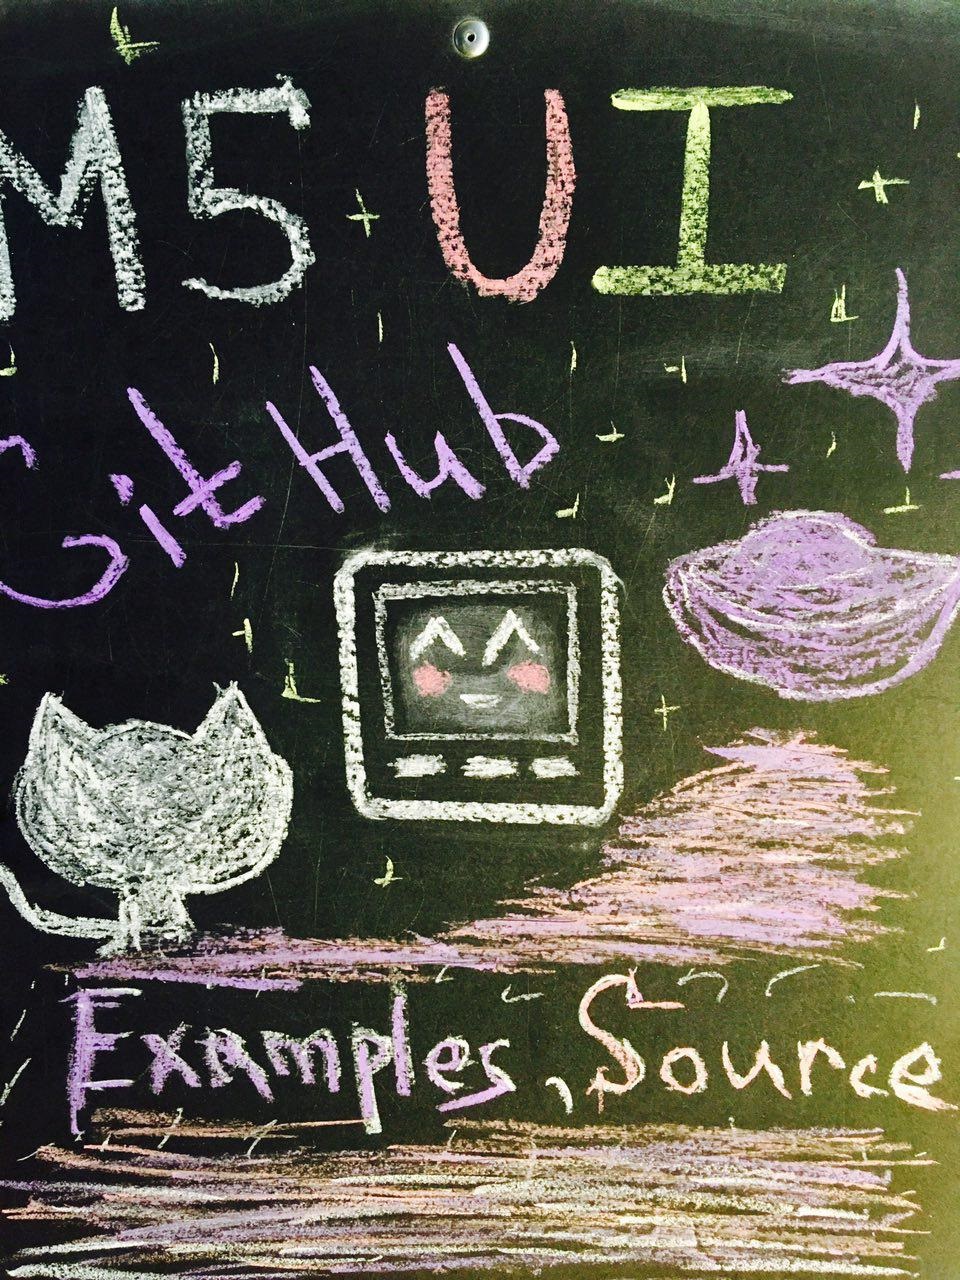 M5 UI
GitHub
Examples, Source